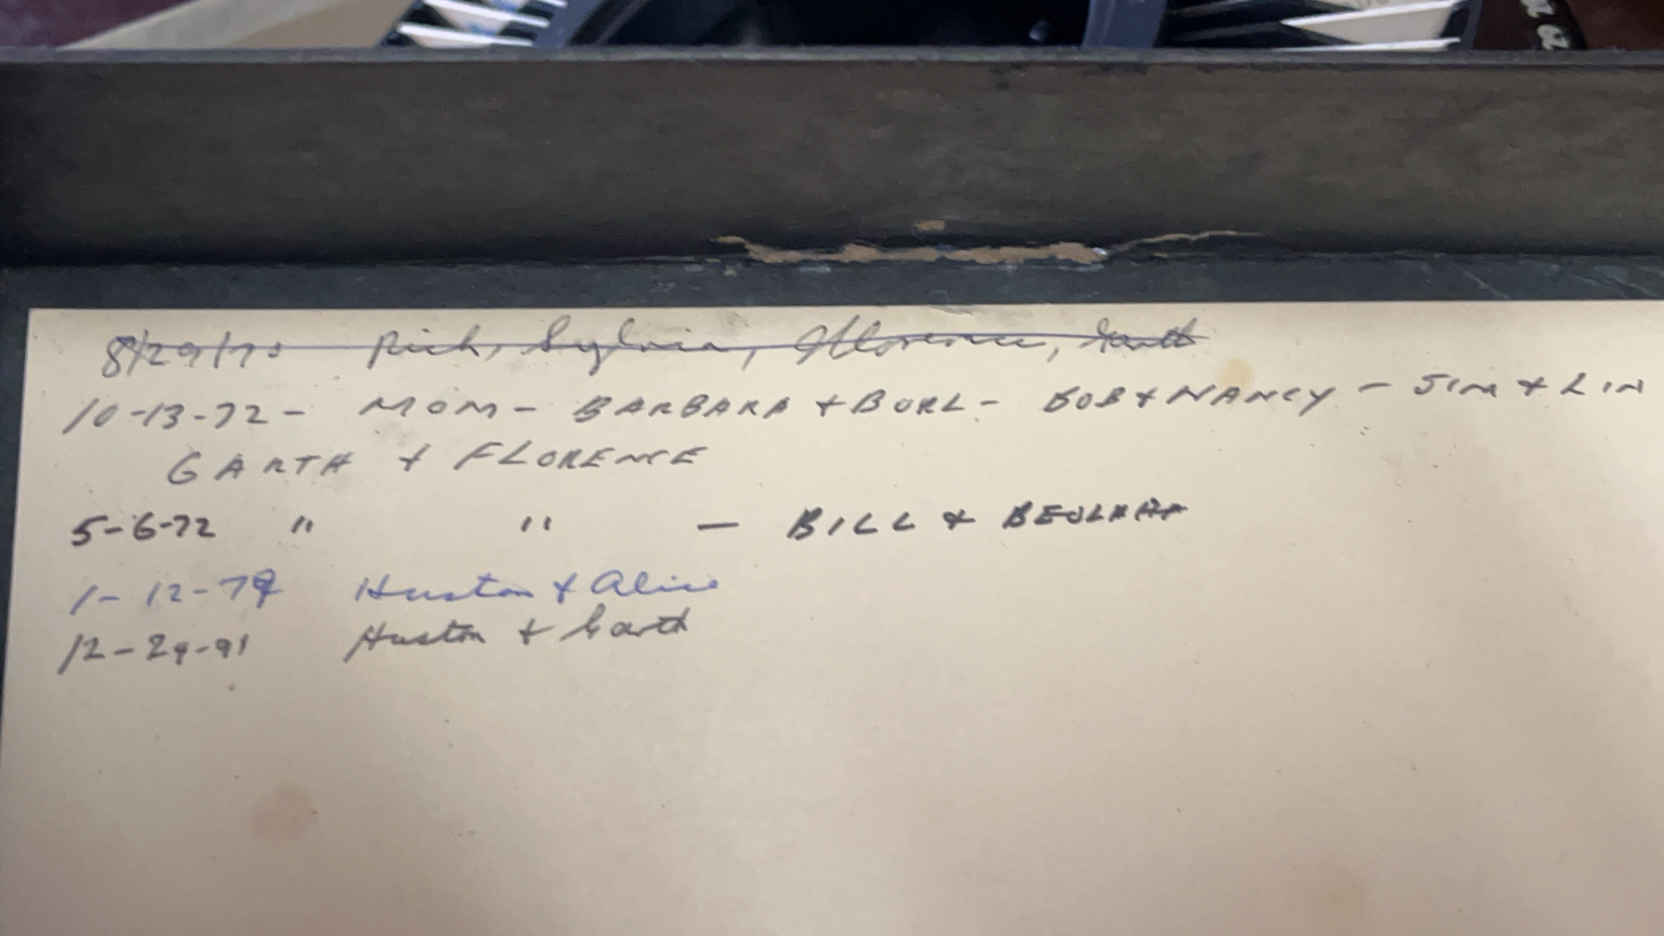 8/29/70 Rich, Sylvia, Florence, Garth
10-13-72 - MOM - BARBARA + BURL - BOB + NANCY - JIM + LIN
GARTH + FLORENCE
5-6-72 " " - BILL + BEULAH
1-12-79 Huston + Alice
12-29-91 Huston + Garth